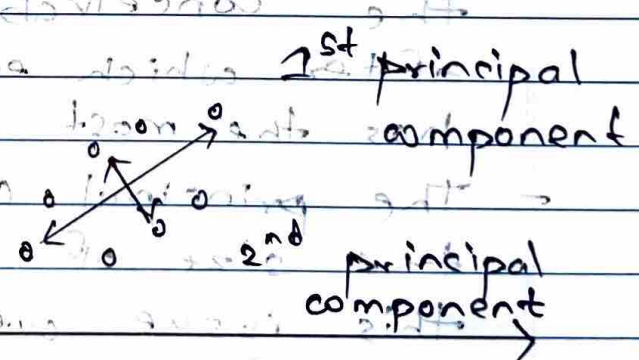 1st principal
component
2nd principal
component